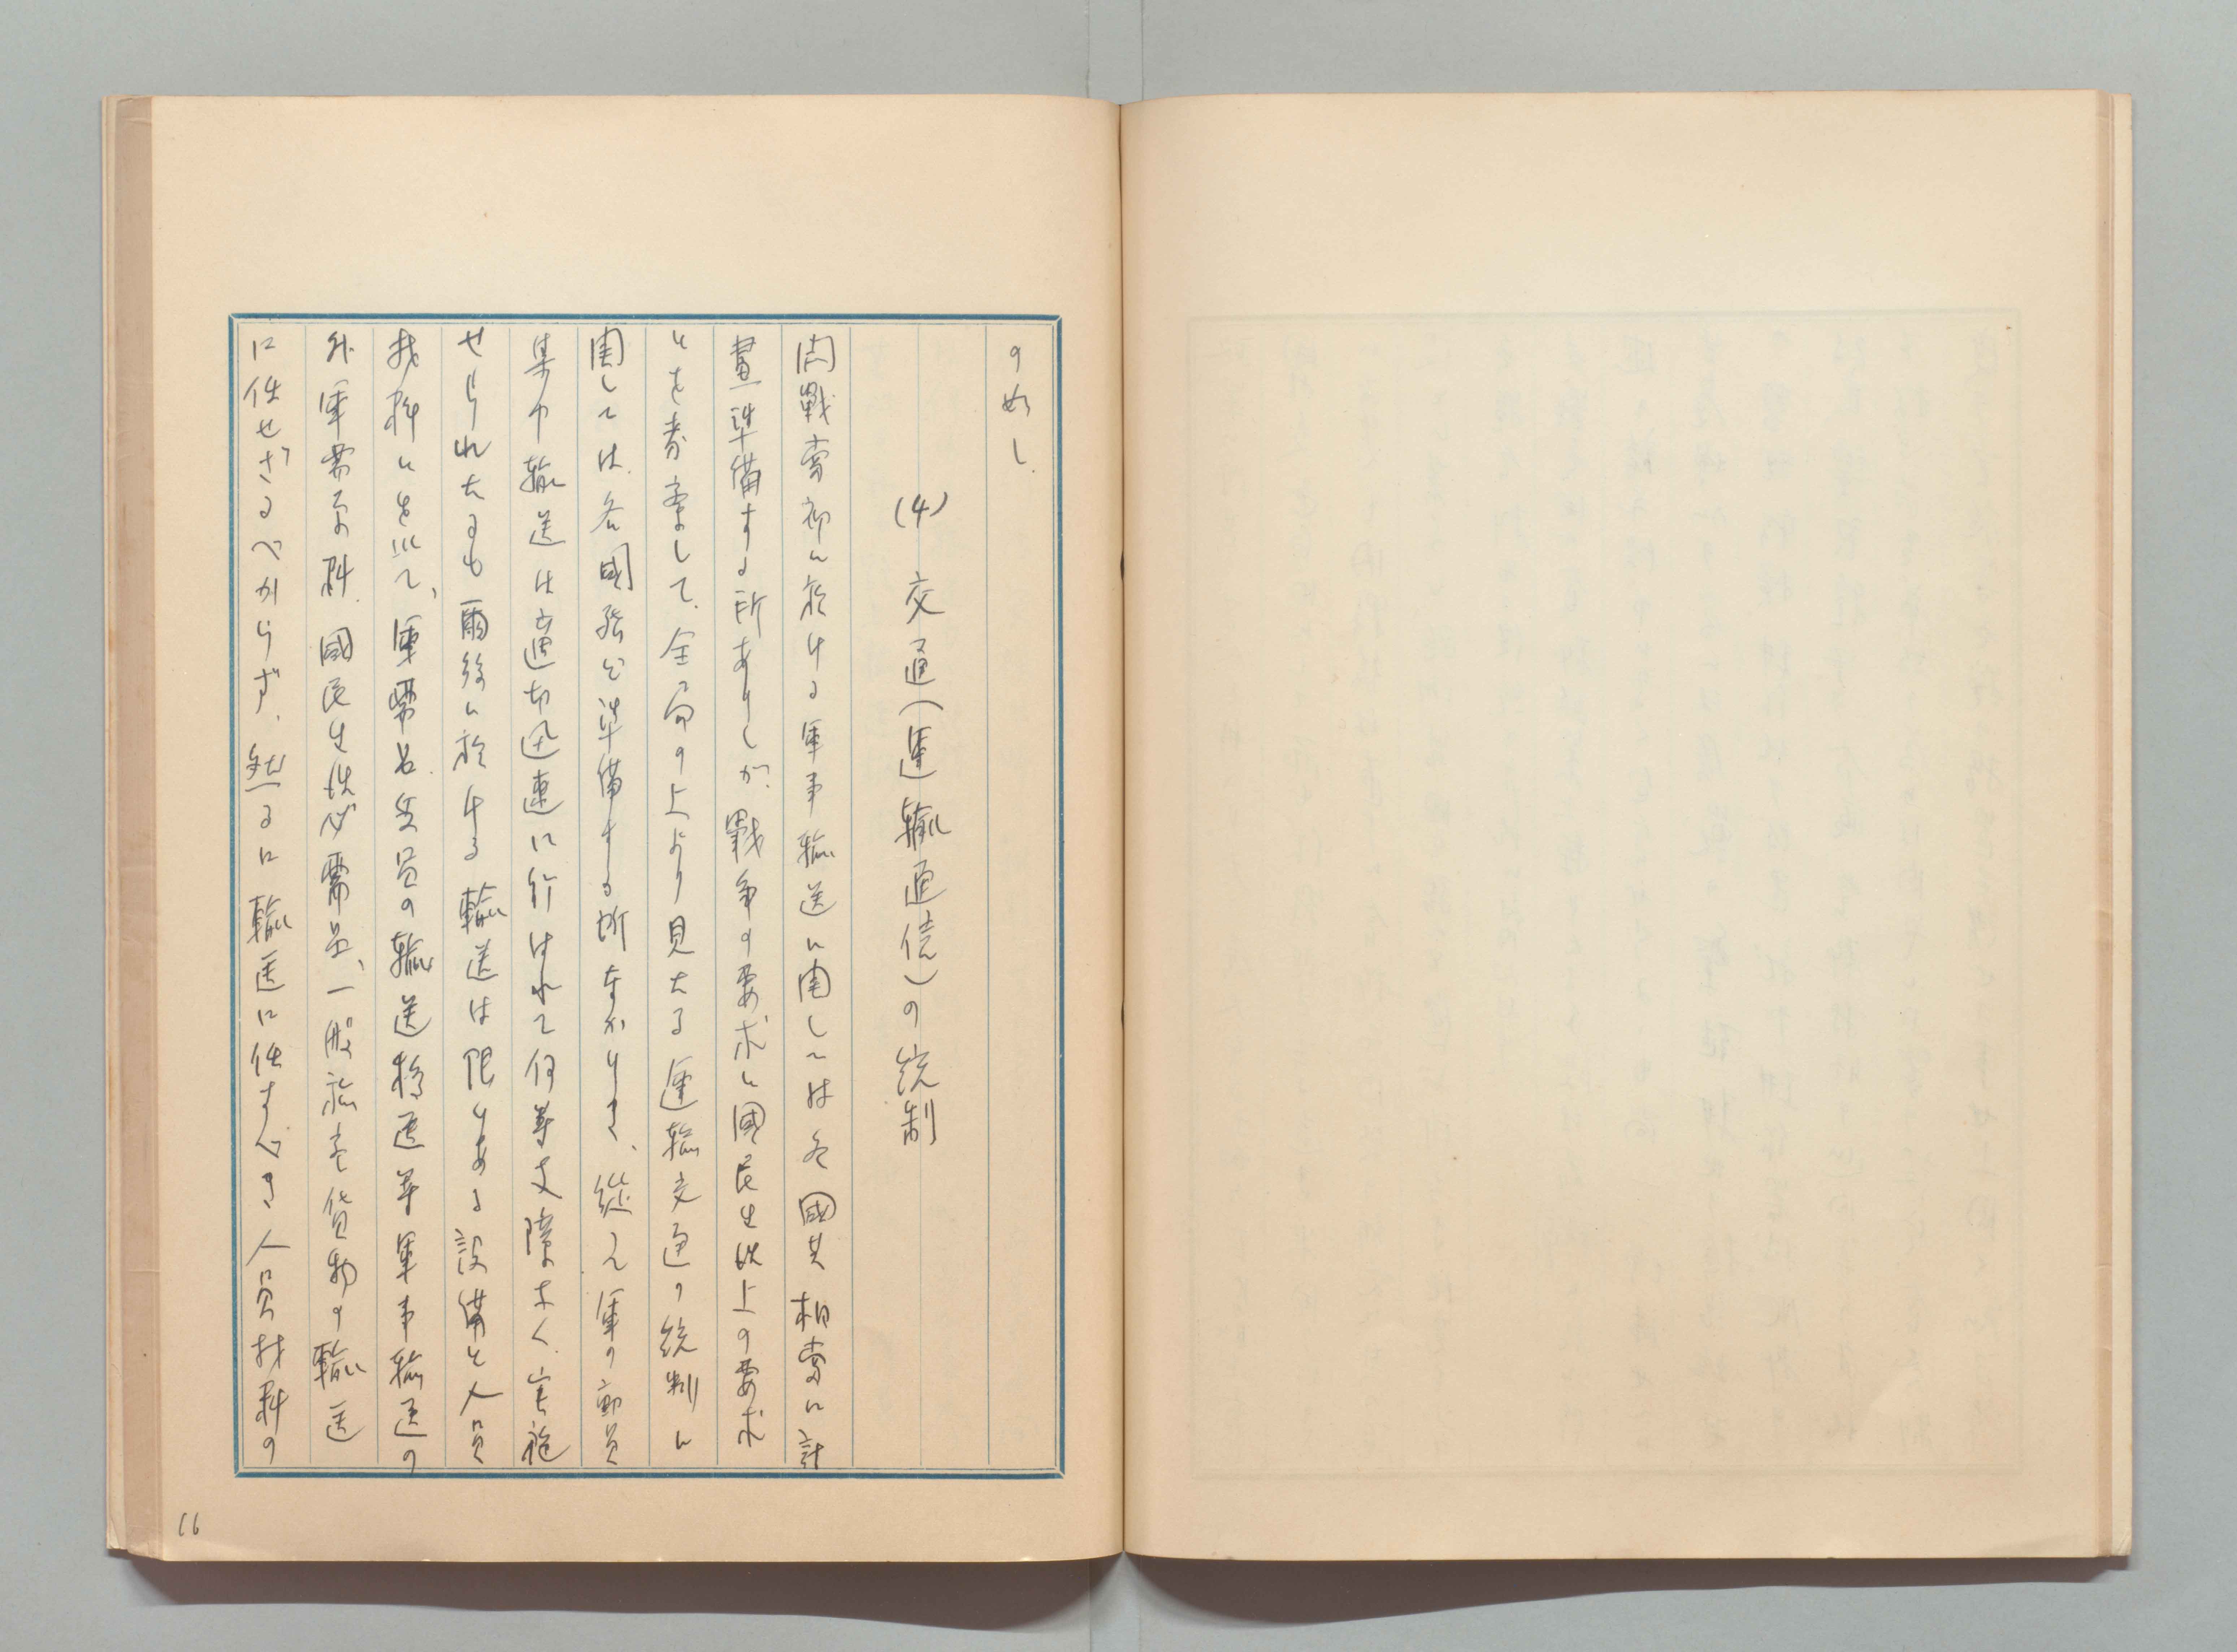 の如し.
(4) 交通(運輸通信)の統制
開戰當初に於ける軍事輸送に関しては各國共相當に計
畫準備する所ありしが、戰争の要求に國民生活上の要求
とを考率して、全局の上より見たる運輸交通の統制に
関しては、各國殆ど準備する所なかりき、從て軍の動員
集中輸送は適切迅速に行はれて何等支障なく、実施
せられたるも爾後に於ける輸送は限りある設備と人員
材料とを以て、軍需品、兵員の輸送移送等軍事輸送の
外軍需原料、國民生活必需品、一般旅客貨物の輸送
に任せざるべからず、然るに輸送に任すべき人員材料の
16